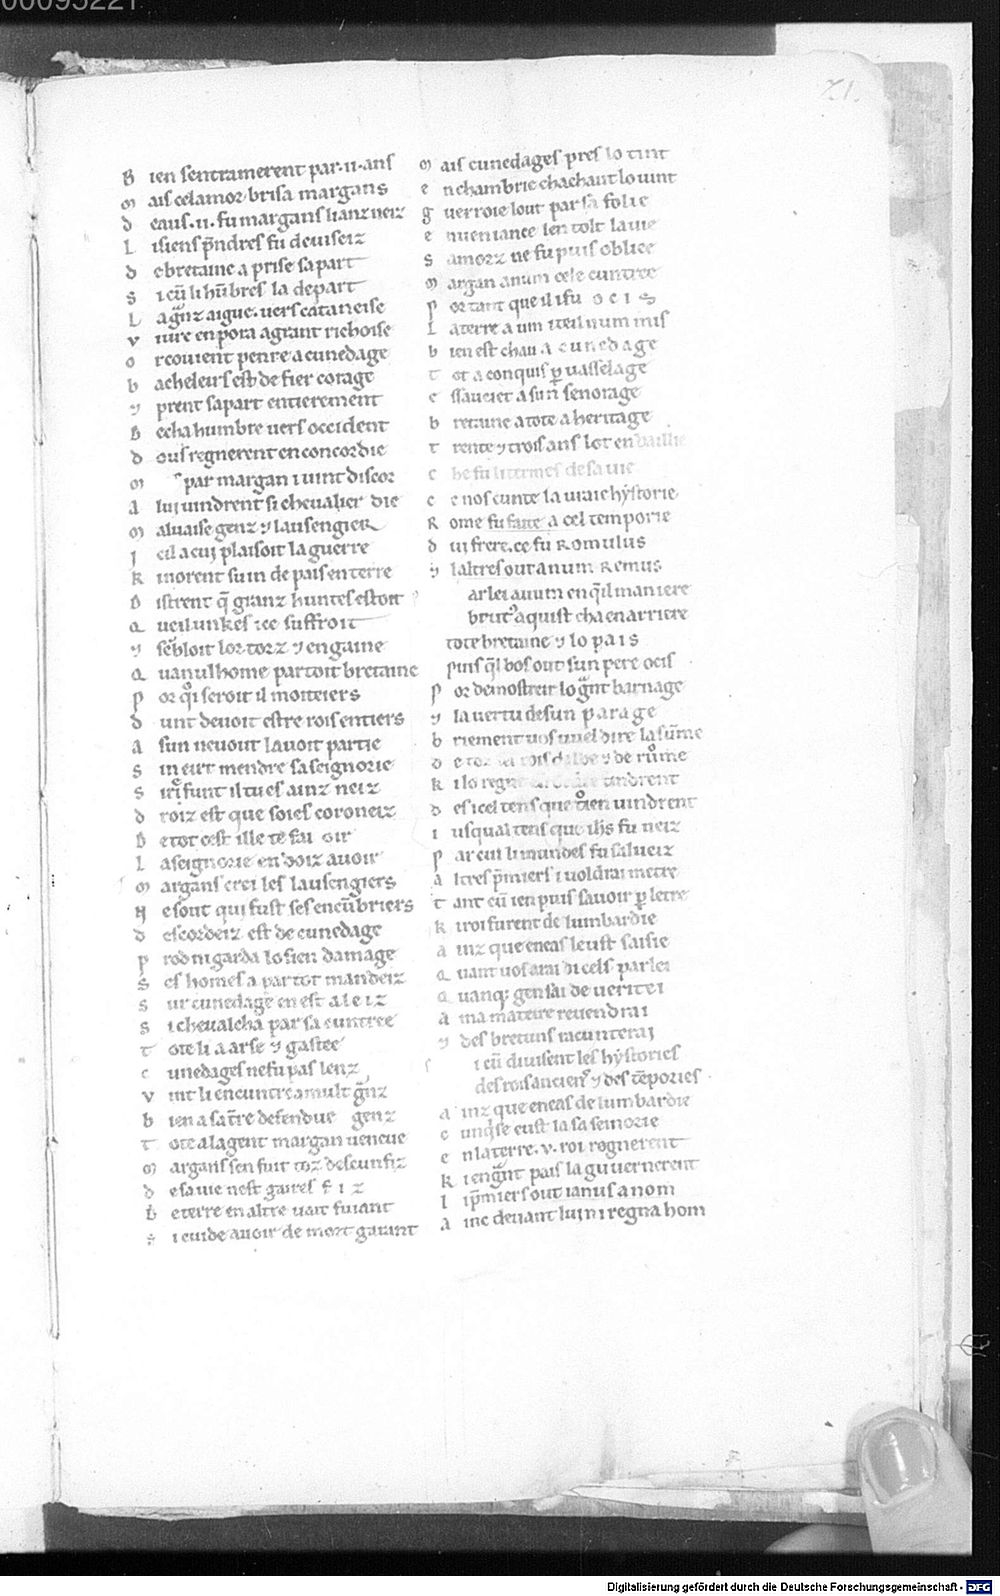 00095221
21.
B ien sentramerent par .ii. ans
M ais cel amor brisa margans
D eaus .ii. fu margans li anzneiz
L isiens p̄ndres fu deuiseiz
D e bretaine a prise sa part
S i cū li hūbres la depart
L a gnz aigue. uers cataneise
V iure en pora a grant richoise
O r couient penre a cunedage
B acheleirs est de fier corage
⁊ prent sa part entierement
B echa humbre uers occident
D ous regnerent en concordie
M par margan i uint discor
A lui uindrent si cheualier die
M aluaise genz ⁊ lausengier
I cil a cui plaisoit la guerre
K i norent suin de pais en terre
D istrent q̄ granz huntes estoit
Q ue il unkes ice suffroit
⁊ sēbloit lor torz ⁊ engaine
Q uan nul home partoit bretaine
P or qi seroit il moiteiers
D unt deuoit estre rois entiers
A sun neuout lauoit partie
S in eirt mendre sa seignorie
S iri funt il tu es ainz neiz
D roiz est que soies coroneiz
D e tot cest ille te fai oir
L a seignorie en doiz auoir
M argans crei les lausengiers
N e sout qui fust ses encūbriers
D escordeiz est de cunedage
P rod ni garda lo sien damage
S es homes a par tot mandeiz
S ur cunedage en est aleiz
S i cheualcha par sa cuntree
T ote li a arse ⁊ gastee
C unedages ne fu pas lenz
V int li encuntre a mult gnz
B ien a sa tr̄e defendue genz
T ote a la gent margan uencue
M argans sen fuit toz descunfiz
D e sa uie nest gaires fiz
D e terre en altre uait fuiant
S i cuide auoir de mort garant
M ais cunedages pres lo tint
E n chambrie chachant lo uint
G uerroie lout par sa folie
E n ueniance len tolt la uie
S a morz ne fu puis oblice
M argan a num cele cuntree
P or tant que il i fu ocis
L a terre a un iteil num mis
B ien est chau a cunedage
T ot a conquis p uasselage
E ssauciet a sun senorage
B retaine a tote a heritage
T rente ⁊ trois ans lot en baillie
C he fu li termes de sa uie
C e nos cunte la uraie hystorie
R ome fu faite a cel temporie
D ui frere. ce fu Romulus
⁊ laltres out a num Remus
ar lei auum en q̄il maniere
brut' aquist cha en arriere
tote bretaine ⁊ lo pais
puis q̄l bos out sun pere ocis
P or demostreir lo gnt barnage
⁊ la uertu de sun parage
B riement uos uuel dire la sūme
D e toz les rois dalbe ⁊ de rūme
K i lo regne tindrent
D es icel tens que uindrent
I usqual tens que ih̄s fu neiz
P ar cui li mundes fu salueiz
A ltres p̄miers i uoldrai metre
T ant cū ien puis sauoir p letre
K i roi furent de lumbardie
A inz que eneas leust saisie
Q uant uos arai di cels parlei
Q uanq; gen sai de ueritei
A ma mateire reuendrai
⁊ des bretuns racunterai
i cū diuisent les hystories
des rois anciens ⁊ des tēpories
A inz que eneas de lumbardie
E unq̄se eust la sa seinorie
E n la terre .v. roi regnerent
K i en gnt pais la guuernerent
L i p̄miers out ianus a nom
A inc deuant lui ni regna hom
Digitalisierung gefördert durch die Deutsche Forschungsgemeinschaft - DFG